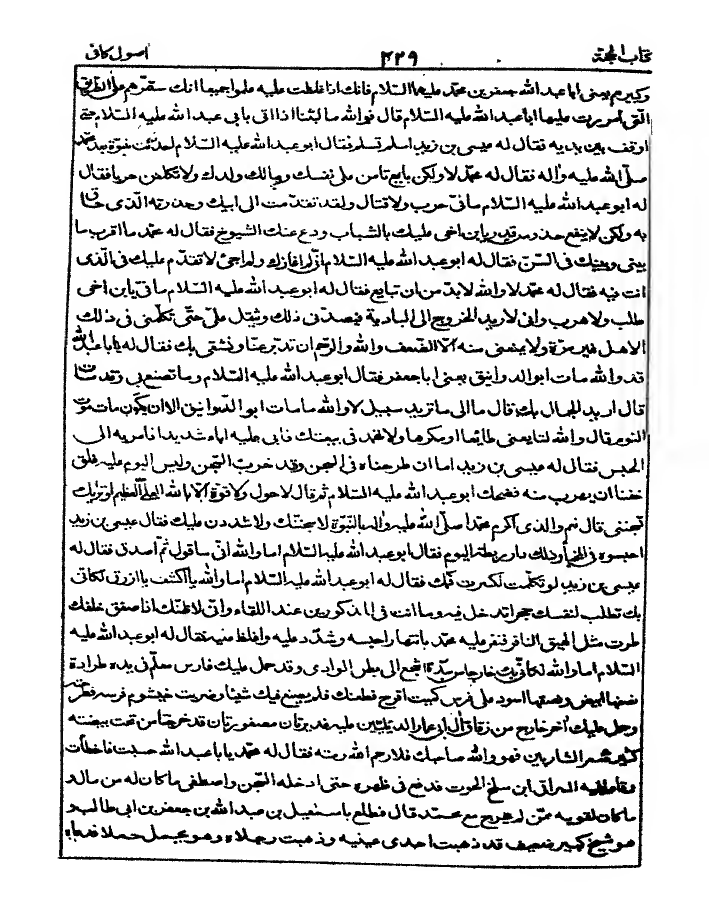 كتاب الحجة ٢٢٩ اصول كافى
وكبيرهم يعنى ابا عبد الله جعفر بن محمد عليهما السلام فانك اذا غلظت عليه علموا جميعا انك ستمرهم على الطريق
التى امررت عليها ابا عبد الله عليه السلام قال فوالله ما لبثنا اذ اتى بابى عبد الله عليه السلام حتى
اوقف بين يديه فقال له عيسى بن زيد اسلم تسلم فقال ابو عبد الله عليه السلام احدثت نبوة بعد محمد
صلى الله عليه واله فقال له محمد لا ولكن بايع تامن على نفسك ومالك وولدك ولا تكلفن حربا فقال
له ابو عبد الله عليه السلام ما فى حرب ولا قتال ولقد تقدمت الى ابيك وحذرته الذى حاق
به ولكن لا ينفع حذر من قدر يا ابن اخى عليك بالشباب ودع عنك الشيوخ فقال له محمد ما اقرب ما
بينى وبينك فى السن فقال له ابو عبد الله عليه السلام انى لم اعازك ولم اجئ لا تقدم عليك فى الذى
انت فيه فقال له محمد لا والله لا بد من ان تبايع فقال له ابو عبد الله عليه السلام ما فى يا ابن اخى
طلب ولا هرب وانى لاريد الخروج الى البادية فيصدنى ذلك ويثقل على حتى تكلمنى فى ذلك
الاهل غير مرة ولا يمنعنى منه الا الضعف والله والرحم ان تدبر عنا ونشقى بك فقال له يا ابا عبد الله
قد والله مات ابو الدوانيق يعنى ابا جعفر فقال ابو عبد الله عليه السلام وما تصنع بى وقد مات
قال اريد الجمال بك قال ما الى ما تريد سبيل لا والله ما مات ابو الدوانيق الا ان يكون مات موت
النوم قال والله لتبايعنى طائعا او مكرها ولا تحمد فى بيعتك فابى عليه اباء شديدا فامر به الى
الحبس فقال له عيسى بن زيد اما ان طرحناه فى السجن وقد خرب السجن وليس اليوم عليه غلق
خفنا ان يهرب منه فضحك ابو عبد الله عليه السلام ثم قال لا حول ولا قوة الا بالله العلى العظيم او تراك
تسجننى قال نعم والذى اكرم محمدا صلى الله عليه واله بالنبوة لاسجننك ولاشددن عليك فقال عيسى بن زيد
احبسوه فى المخبأ وذلك دار ريطة اليوم فقال ابو عبد الله عليه السلام اما والله انى ساقول ثم اصدق فقال له
عيسى بن زيد لو تكلمت لكسرت فمك فقال له ابو عبد الله عليه السلام اما والله يا اكشف يا ازرق لكانى
بك تطلب لنفسك جحرا تدخل فيه وما انت فى المذكورين عند اللقاء وانى لاظنك اذا صفق خلفك
طرت مثل الهيق النافر فنفر عليه محمد بانتهار احبسه وشدد عليه واغلظ عليه فقال له ابو عبد الله عليه
السلام اما والله لكانى بك خارجا من سدة اشجع الى بطن الوادى وقد حمل عليك فارس معلم فى يده طرادة
نصفها ابيض ونصفها اسود على فرس كميت اقرح فطعنك فلم يصنع فيك شيئا وضربت خيشوم فرسه فطرحته
وحمل عليك اخر خارج من زقاق ال ابى عمار الدئليين عليه غديرتان مضفورتان قد خرجتا من تحت بيضته
كثير شعر الشاربين فهو والله صاحبك فلا رحم الله رمته فقال له محمد يا ابا عبد الله حسبت فاخطأت
وقام اليه السراقى ابن سلخ الحوت فدفع فى ظهره حتى ادخله السجن واصطفى ما كان له من مال و
ما كان لقومه ممن لم يخرج مع محمد قال فطلع باسمعيل بن عبد الله بن جعفر بن ابى طالب و
هو شيخ كبير ضعيف قد ذهبت احدى عينيه وذهبت رجلاه وهو يحمل حملا فدعاه